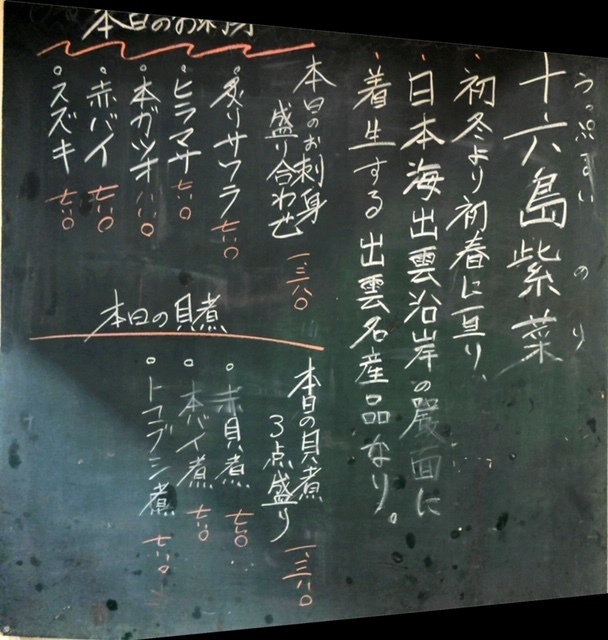 うっぷすい のり
十六島紫菜
・初冬より初春に亘り、
・日本海出雲沿岸の巌面に
・着生する出雲名産品なり。
本日のお刺身
本日のお刺身
盛り合わせ 一、三八〇
○炙りサワラ 七八〇
○ヒラマサ 七八〇
○本ガツオ 八八〇
○赤バイ 七八〇
○スズキ 七八〇
本日の貝煮
本日の貝煮
3点盛り 一、三八〇
○赤貝煮 七五〇
○本バイ煮 七八〇
○トコブシ煮 七八〇